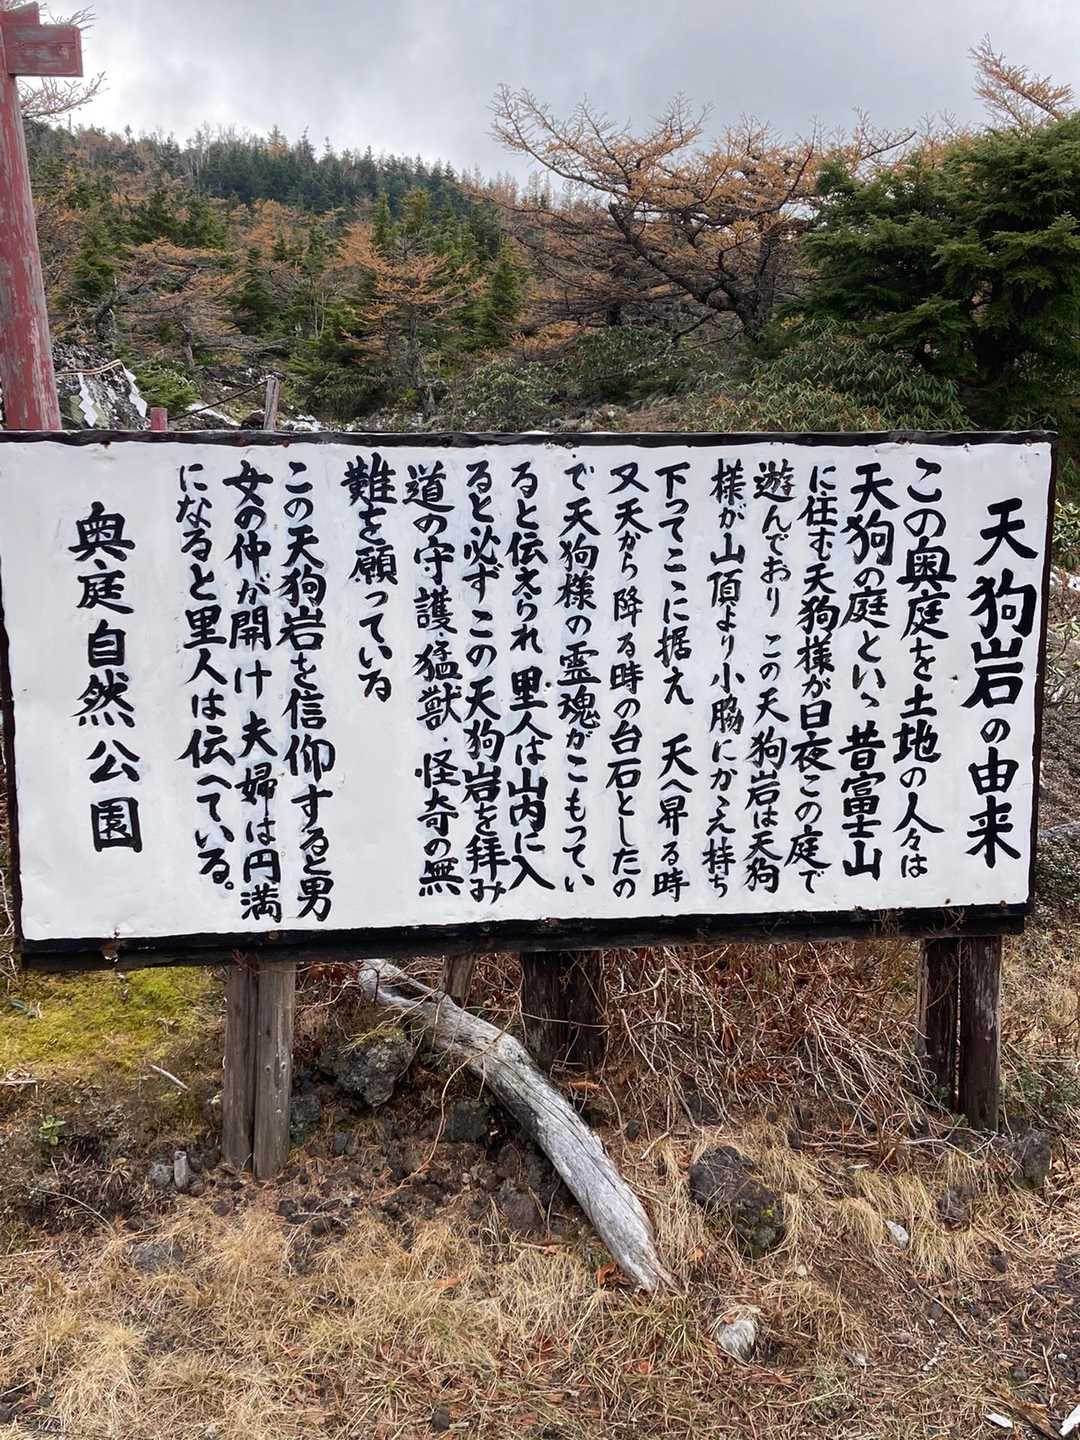 天狗岩の由来
この奥庭を土地の人々は
天狗の庭といゝ昔富士山
に住む天狗様が日夜この庭で
遊んでおり この天狗岩は天狗
様が山頂より小脇にかえ持ち
下ってここに据え 天へ昇る時
又天から降る時の台石としたの
で天狗様の霊魂がこもってい
ると伝えられ 里人は山内に入
ると必ずこの天狗岩を拝み
道の守護・猛獣・怪奇の無
難を願っている
この天狗岩を信仰すると男
女の仲が開け夫婦は円満
になると里人は伝へている。
奥庭自然公園